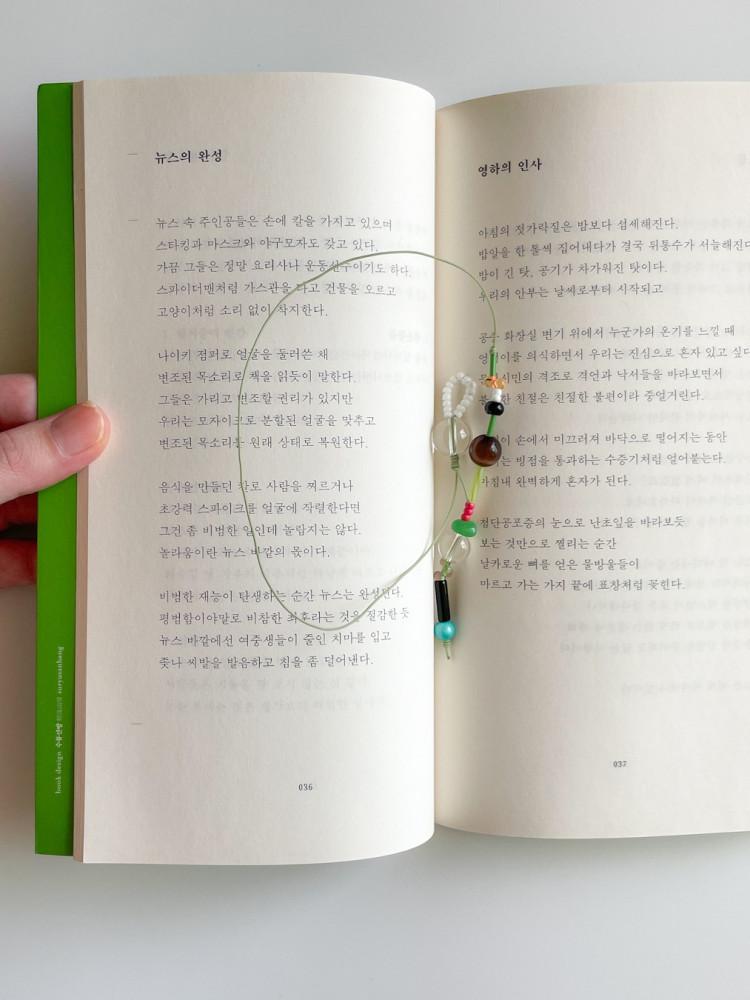 뉴스의 완성
뉴스 속 주인공들은 손에 칼을 가지고 있으며
스타킹과 마스크와 야구모자도 갖고 있다.
가끔 그들은 정말 요리사나 운동선수이기도 하다.
스파이더맨처럼 가스관을 타고 건물을 오르고
고양이처럼 소리 없이 착지한다.
나이키 점퍼로 얼굴을 둘러쓴 채
변조된 목소리로 책을 읽듯이 말한다.
그들은 가리고 변조할 권리가 있지만
우리는 모자이크로 분할된 얼굴을 맞추고
변조된 목소리를 원래 상태로 복원한다.
음식을 만들던 칼로 사람을 찌르거나
초강력 스파이크를 얼굴에 작렬한다면
그건 좀 비범한 일인데 놀랍지는 않다.
놀라움이란 뉴스 바깥의 몫이다.
비범한 재능이 탄생하는 순간 뉴스는 완성된다.
평범함이야말로 비참한 최후라는 것을 절감한 듯
뉴스 바깥에선 여중생들이 줄인 치마를 입고
좆나 씨발을 발음하고 침을 좀 덜어낸다.
036
영하의 인사
아침의 젓가락질은 밤보다 섬세해진다.
밥알을 한 톨씩 집어내다가 결국 뒤통수가 서늘해진다
밤이 긴 탓, 공기가 차가워진 탓이다.
우리의 안부는 날씨로부터 시작되고
화장실 변기 위에서 누군가의 온기를 느낄 때
의식하면서 우리는 진심으로 혼자 있고 싶다
시민의 격조로 격언과 낙서들을 바라보면서
친절은 친절한 불편이라 중얼거린다.
손에서 미끄러져 바닥으로 떨어지는 동안
빙점을 통과하는 수증기처럼 얼어붙는다.
완벽하게 혼자가 된다.
첨단공포증의 눈으로 난초잎을 바라보듯
보는 것만으로 찔리는 순간
날카로운 뼈를 얻은 물방울들이
마르고 가는 가지 끝에 표창처럼 꽂힌다.
037
book design 수류산방